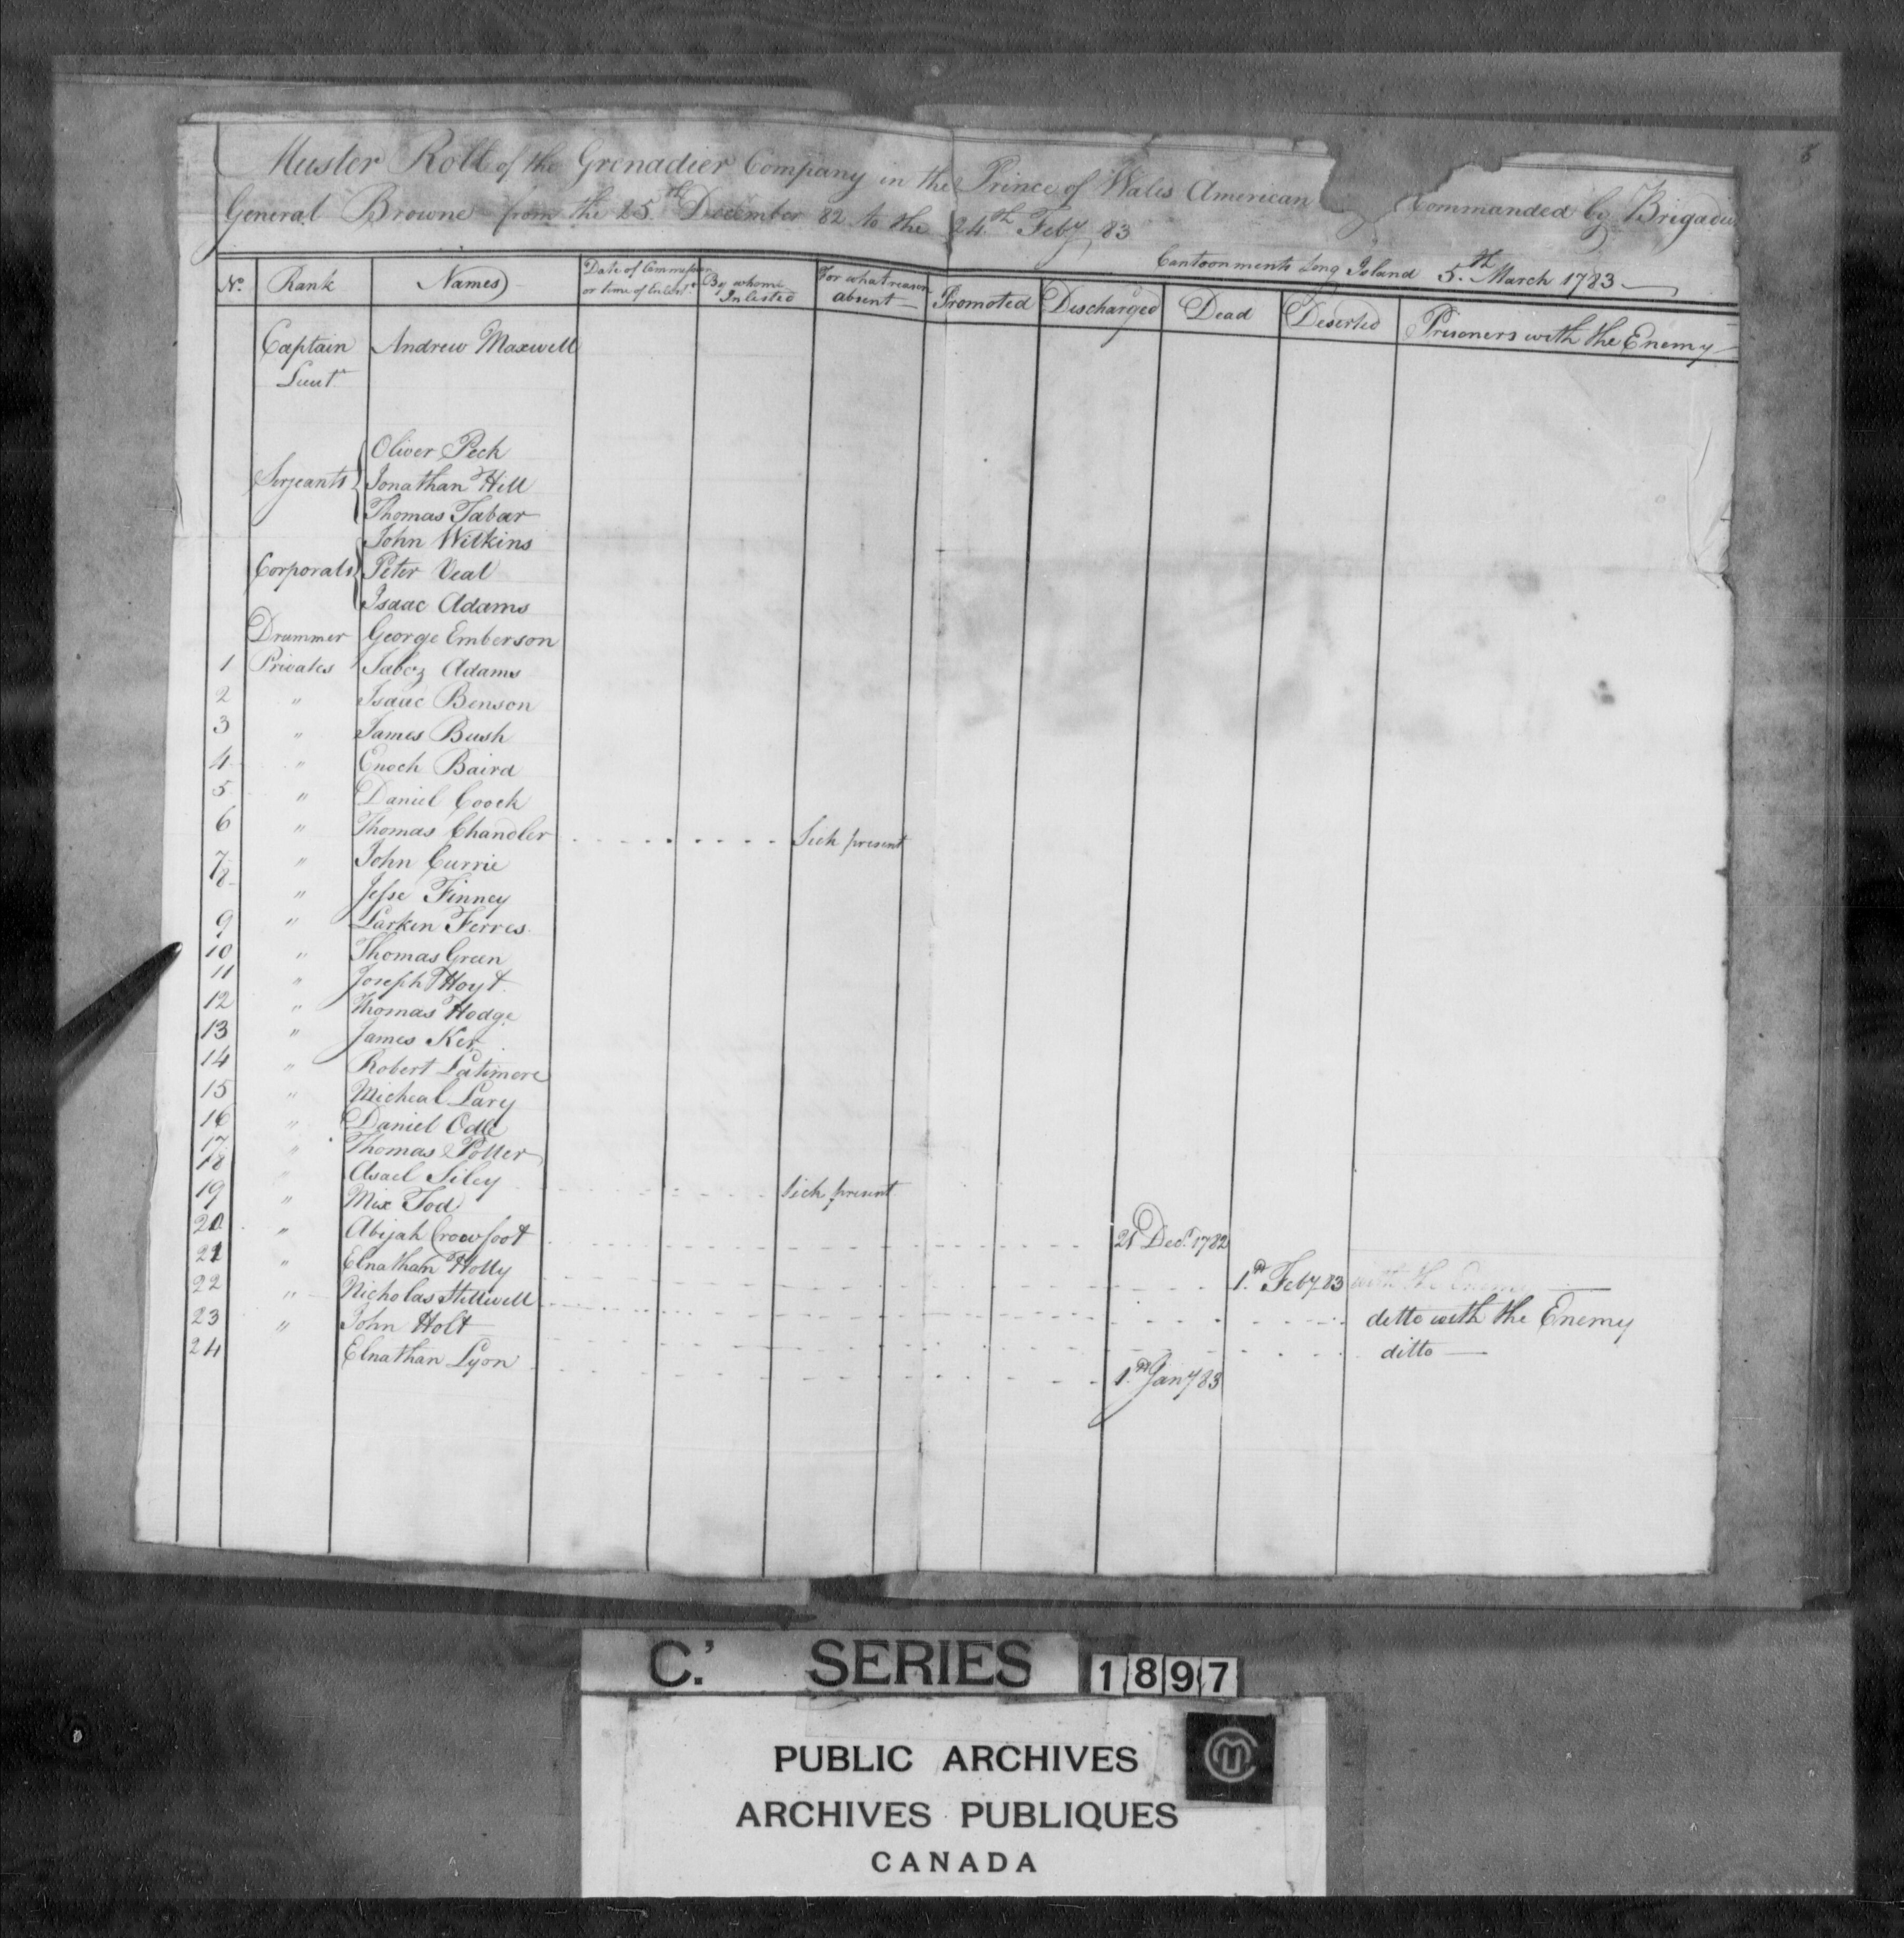 8
Muster Roll of the Grenadier Company in the Prince of Wales American Commanded by Brigadier
General Browne from the 25th December 82 to the 24th Feby 83
Cantoonments Long Island 5th March 1783
No. Rank Names Date of Commission or time of Enlist.t By whom Inlisted For what reason absent Promoted Discharged Dead Deserted Prisoners with the Enemy
Captain Andrew Maxwell
Lieut.
Oliver Peck
Serjeants Jonathan Hill
Thomas Tabar
John Wilkins
Corporals Peter Veal
Isaac Adams
Drummer George Emberson
1 Privates Jabez Adams
2 " Isaac Benson
3 " James Bush
4 " Enoch Baird
5 " Daniel Coock
6 " Thomas Chandler Sick present
7 " John Currie
8 " Jesse Finney
9 " Larken Ferres
10 " Thomas Green
11 " Joseph Hoyt
12 " Thomas Hodge
13 " James Ker
14 " Robert Latimore
15 " Micheal Lary
16 " Daniel Odle
17 " Thomas Potter
18 " Asael Siley
19 " Mix Tod Sick present
20 " Abijah Crowfoot 21 Decr. 1782
21 " Elnathan Holly 1st Feby 83 with the Enemy
22 " Nicholas Stillwell ditto with the Enemy
23 " John Holt ditto
24 Elnathan Lyon 1st Jany 83
C.' SERIES 1897
PUBLIC ARCHIVES
ARCHIVES PUBLIQUES
CANADA